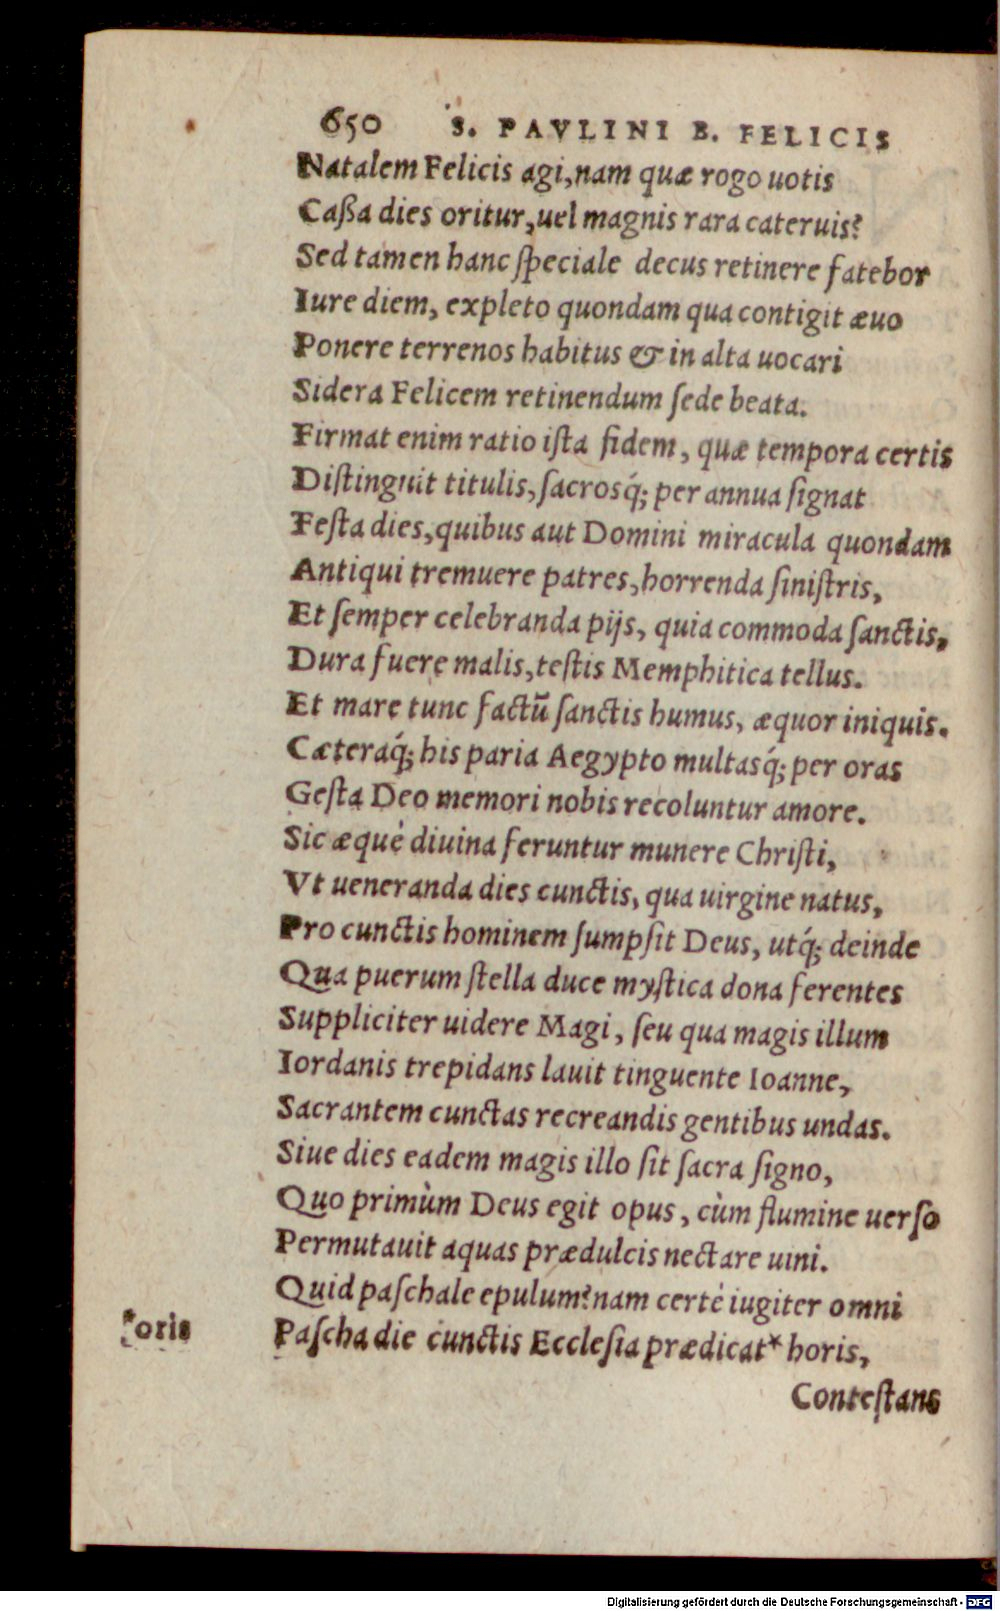 650 S. PAVLINI B. FELICIS
Natalem Felicis agi, nam quæ rogo uotis
Caßa dies oritur, uel magnis rara cateruis?
Sed tamen hanc ſpeciale decus retinere fatebor
Iure diem, expleto quondam qua contigit æuo
Ponere terrenos habitus & in alta uocari
Sidera Felicem retinendum ſede beata.
Firmat enim ratio iſta fidem, quæ tempora certis
Diſtinguit titulis, ſacrosq́; per annua ſignat
Feſta dies, quibus aut Domini miracula quondam
Antiqui tremuere patres, horrenda ſiniſtris,
Et ſemper celebranda pijs, quia commoda ſanctis,
Dura fuere malis, teſtis Memphitica tellus.
Et mare tunc factū ſanctis humus, æquor iniquis.
Cæteraq́; his paria Aegypto multasq́; per oras
Geſta Deo memori nobis recoluntur amore.
Sic æquè diuina feruntur munere Chriſti,
Vt ueneranda dies cunctis, qua uirgine natus,
Pro cunctis hominem ſumpſit Deus, utq́; deinde
Qua puerum ſtella duce myſtica dona ferentes
Suppliciter uidere Magi, ſeu qua magis illum
Iordanis trepidans lauit tinguente Ioanne,
Sacrantem cunctas recreandis gentibus undas.
Siue dies eadem magis illo ſit ſacra ſigno,
Quo primùm Deus egit opus, cùm flumine uerſo
Permutauit aquas prædulcis nectare uini.
Quid paſchale epulum? nam certè iugiter omni
*oris Paſcha die cunctis Eccleſia prædicat* horis,
Conteſtans
Digitalisierung gefördert durch die Deutsche Forschungsgemeinschaft - DFG